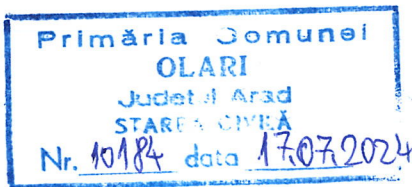 Primăria Comunei
OLARI
Județul Arad
STAREA CIVILĂ
Nr. 10184 data 17.07.2024